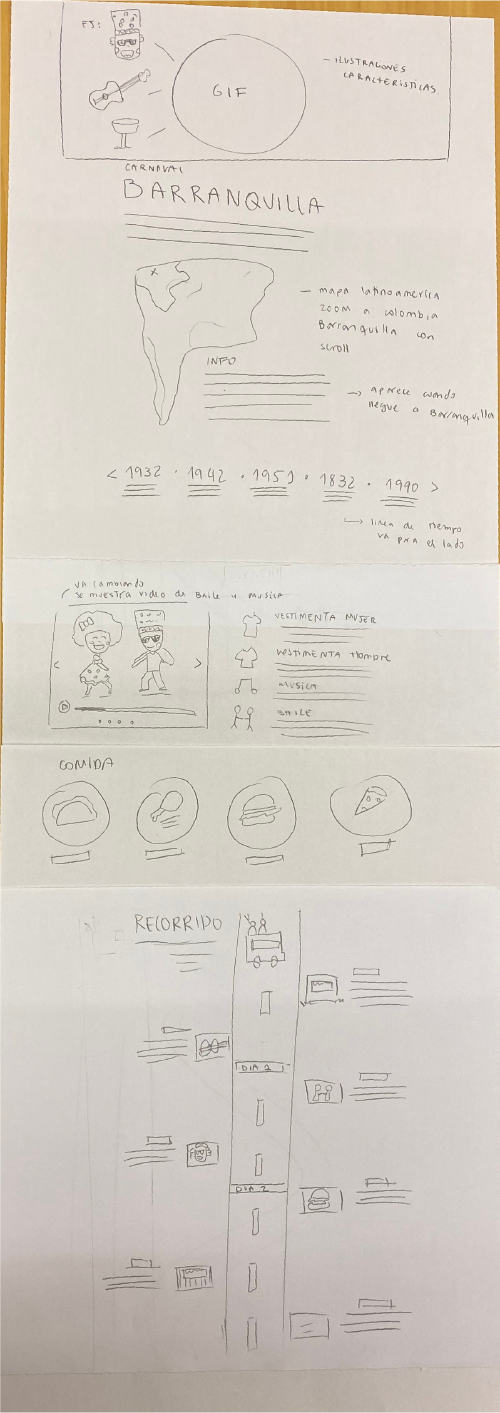 EJ:
GIF
- ILUSTRACIONES
CARACTERISTICAS
CARNAVAL
BARRANQUILLA
- mapa latinoamerica
zoom a colombia
Barranquilla con
scroll
INFO
→ aparece cuando
llegue a Barranquilla
< 1932 · 1942 · 1951 · 1832 · 1990 >
→ linea de tiempo
va para el lado
va cambiando
se muestra video de BAILE y MUSICA
VESTIMENTA MUJER
VESTIMENTA Hombre
MUSICA
BAILE
COMIDA
RECORRIDO
DIA 1
DIA 2